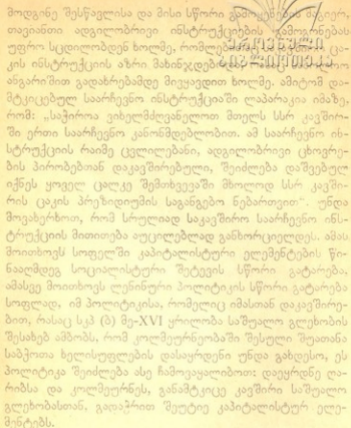 მოდგინე შესწავლისა და მისი სწორი გამოყენების მაგიერ,
თავიანთი ადგილობრივი ინსტრუქციების გამოგონებას
უფრო სცდილობდენ ხოლმე,
კის ინსტრუქციის აზრი
ანგარიშით გადახრებამდე მივყავდით ხოლმე. ამიტომ და-
მტკიცებულ საარჩევნო ინსტრუქციაში ლაპარაკია იმაზე,
რომ: „საჭიროა ვიხელმძღვანელოთ მთელს სსრ კავშირ-
ში ერთი საარჩევნო კანონმდებლობით. ამ საარჩევნო ინ-
სტრუქციის რაიმე ცვლილებანი, ადგილობრივი ცხოვრე-
ბის პირობებთან დაკავშირებული, შეიძლება დაშვებულ
იქნეს ყოველ ცალკე შემთხვევაში მხოლოდ სსრ კავში-
რის ცაკის პრეზიდიუმის საგანგებო ნებართვით“. უნდა
მოვახერხოთ, რომ სრულიად საკავშირო საარჩევნო ინს-
ტრუქციის მითითება აუცილებლად განხორციელდეს. ამას
მოითხოვს სოფელში კაპიტალისტური ელემენტების წი-
ნააღმდეგ სოციალისტური შეტევის სწორი გატარება,
ამასვე მოითხოვს ლენინური პოლიტიკის სწორი გატარება
სოფლად, იმ პოლიტიკისა, რომელიც იმასთან დაკავშირე-
ბით, რასაც სკპ (ბ) მე-XVI ყრილობა საშუალო გლეხობის
შესახებ ამბობს, რომ კოლმეურნეობაში შესული შუათანა
საბჭოთა ხელისუფლების დასაყრდენი უნდა გახდესო, ეს
პოლიტიკა შეიძლება ასე ჩამოვაყალიბოთ: დაეყრდნე ღა-
რიბსა და კოლმეურნეს, განამტკიცე კავშირი საშუალო
გლეხობასთან, გადაჭრით შეუტიე კაპიტალისტურ ელე-
მენტებს.